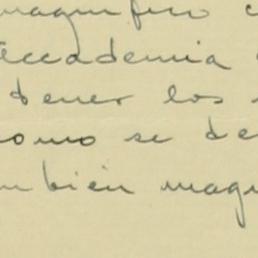 magnifico c
Accademia
tener los
como se de
mbién magn